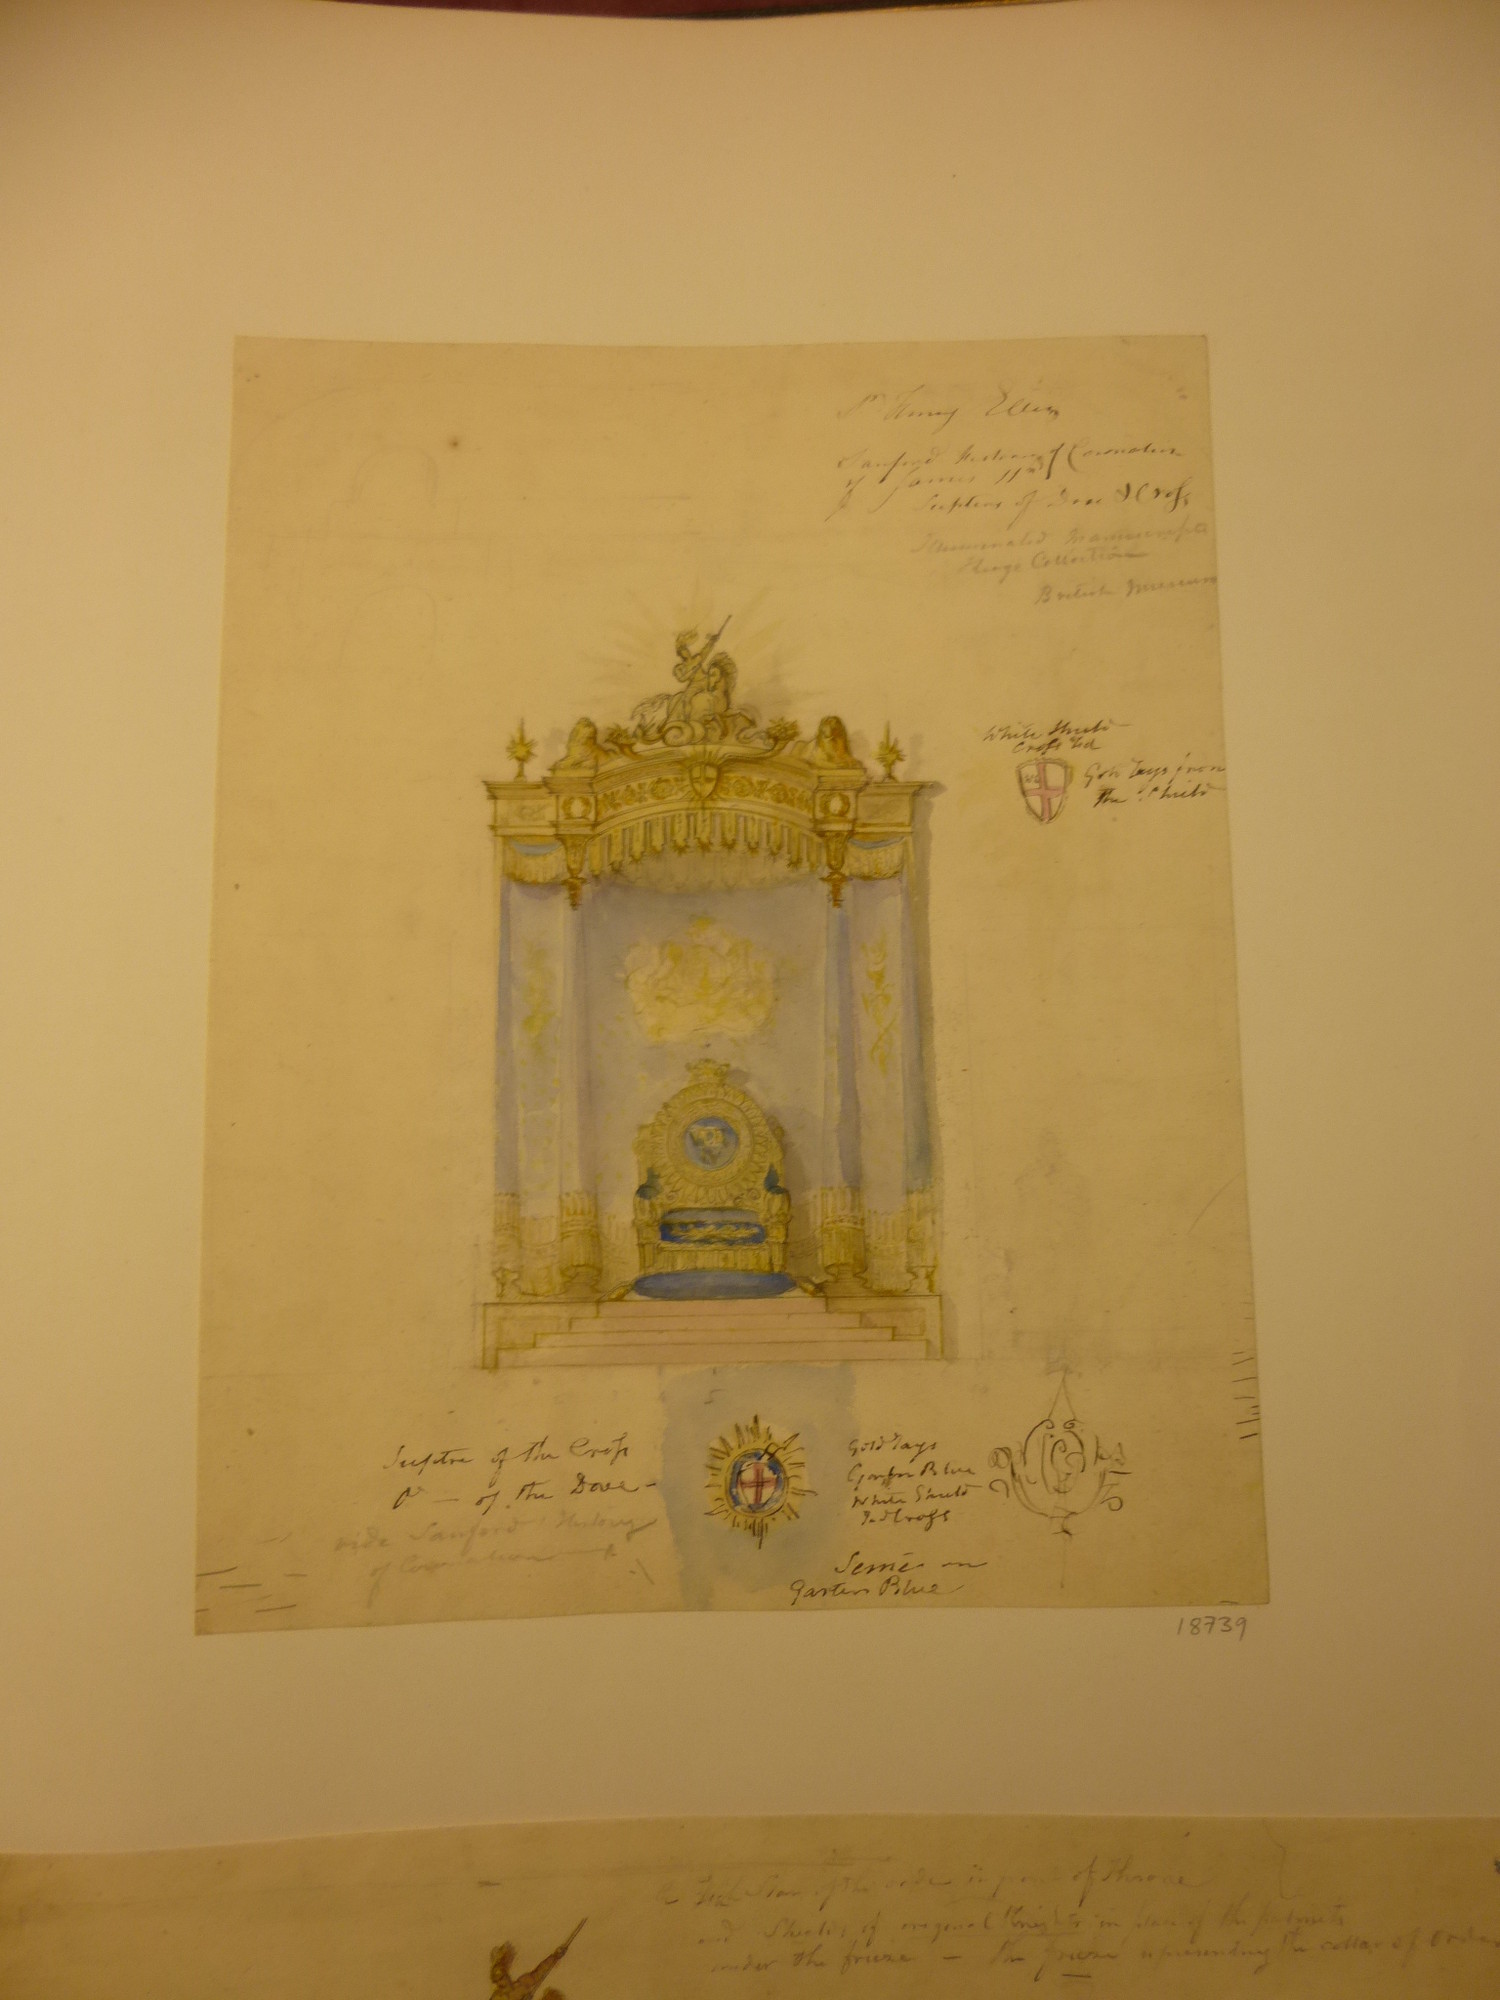 Sr Henry Ellis
Sanford History of Coronation
of James IInd
Sceptres of Dove & Cross
Illuminated Manuscripts
Kings Collection
British Museum
White Shield
Cross Red
Gold Rays from
the Shield
Sceptre of the Cross
Do — of the Dove —
vide Sanford History
of Coronation
Gold Rays
Garter Blue
White Shield
Red Cross
Semie on
Garters Blue
18739
Star of the order in of Throne
and Shields of original Knights in place of the
under the frieze — the frieze representing the collar of Order